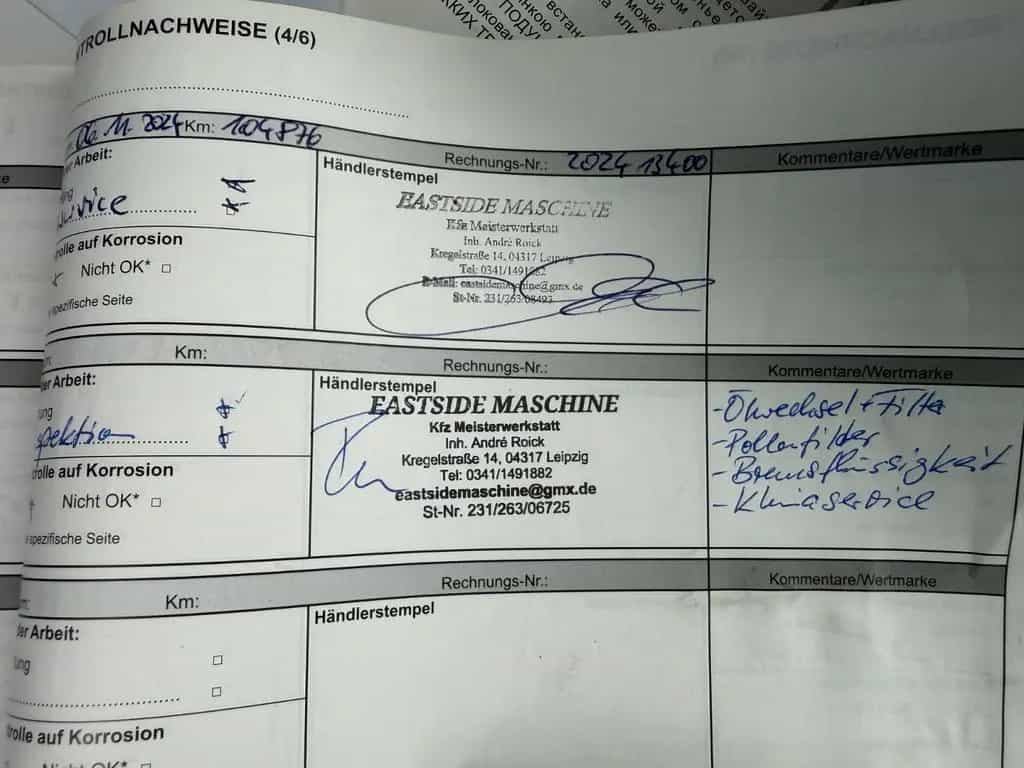 TROLLNACHWEISE (4/6)
06.11.2024 Km: 104876
Rechnungs-Nr.: 2024 13400
Kommentare/Wertmarke
Arbeit:
Händlerstempel
EASTSIDE MASCHINE
Kfz Meisterwerkstatt
Inh. André Roick
Kregelstraße 14, 04317 Leipzig
Tel: 0341/1491882
E-Mail: eastsidemaschine@gmx.de
St-Nr. 231/263/08493
rolle auf Korrosion
Nicht OK*
spezifische Seite
Km:
Rechnungs-Nr.:
Kommentare/Wertmarke
er Arbeit:
ung
spektion
Händlerstempel
EASTSIDE MASCHINE
Kfz Meisterwerkstatt
Inh. André Roick
Kregelstraße 14, 04317 Leipzig
Tel: 0341/1491882
eastsidemaschine@gmx.de
St-Nr. 231/263/06725
-Ölwechsel + Filter
-Pollenfilder
-Bremsflüssigkeit
-Klimaservice
rolle auf Korrosion
Nicht OK*
spezifische Seite
Km:
Rechnungs-Nr.:
Kommentare/Wertmarke
er Arbeit:
ung
Händlerstempel
trolle auf Korrosion
Nicht OK*